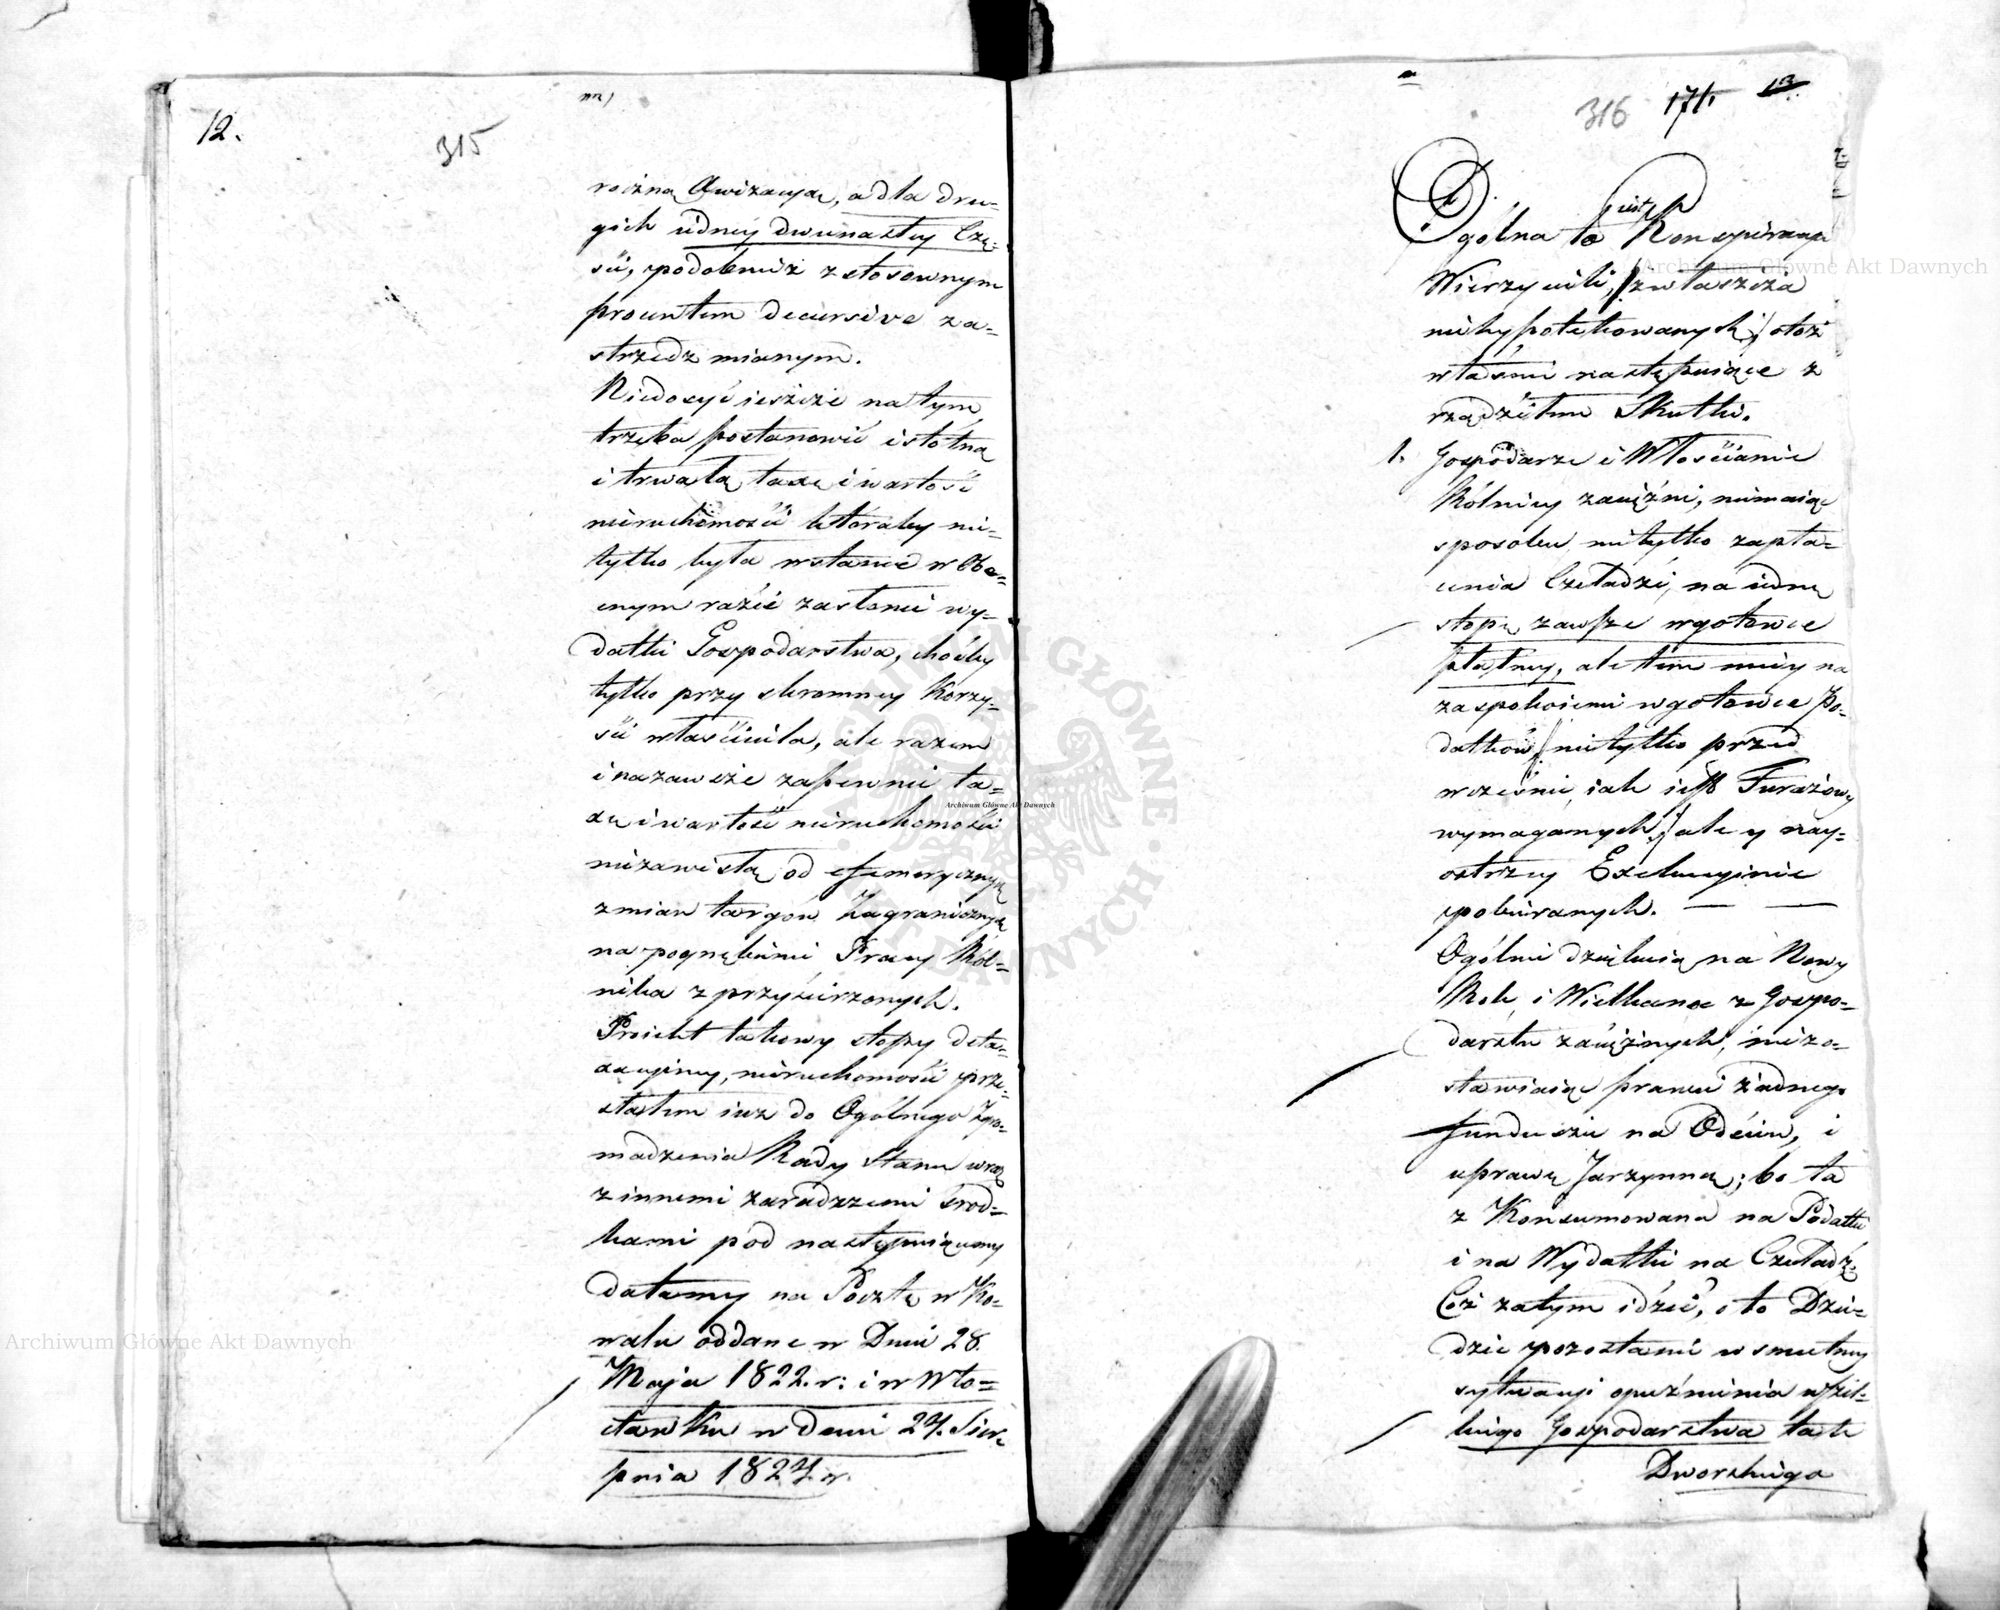 12.
315
m)
roczną Awizacyą, a dla dru-
gich iedney dwunastey Czę-
ści, podobnież z stosownym
procentem decursive za-
strzedz mianym.
Niedosyć ieszcze na tym
trzeba postanowić istotną
i trwałą taxę i wartość
nieruchomości któraby nie-
tylko była wstanie w Obe-
cnym razie zastonić wy-
datki Gospodarstwa, choćby
tylko przy skromney Korzy-
ści właściciela, ale razem
i nazawsze zapewnić ta-
xę i wartość nieruchomości
niezawisłą od efemerycznych
zmian targów Zagranicznych
na pognębienie Pracy Rol-
nika z przysierzonych.
Proiekt takowy stopy deta-
xacyiney, nieruchomości prze-
słałem iuż do Ogólnego Zgro-
madzenia Rady Stanu wraz
z innemi zaradzczemi środ-
kami pod następuiącemy
datamy na Pocztę w Ko-
walu oddane w Dniu 28.
Maja 1822. r: i w Wło-
cławku w dniu 27. Sier-
pnia 1824. r.
m
316 171. 13.
Ogólna to iest Konspiracya
Wierzycieli, zwłaszcza
niehypotekowanych, otoż
właśnie następuiące z
rządziłem Skutki.
1. Gospodarze i Włościanie
Rólnicy zaciężni, niemaiąc
sposobu nietylko zapła-
cenia Czeladzi, na iedną
stopę zawsze wgotowce
płatney, ale tem mniey na
zaspokoienie wgotowce Po-
datków, nietylko przed
wcześnie, iak iest Furażowy
wymaganych, ale y nay-
ostrzey Exekucyinie
pobieranych. — —
Ogólnie dziękuią na Nowy
Rok i Wielkanoc z Gospo-
darstw zaciężnych, niezo-
stawiaiąc prawie żadnego
funduszu na Odsiew, i
uprawę Jarzynną; bo ta
z Konsumowana na Podatki
i na Wydatki na Czeladź.
Coż zatym idzie, oto Dzie-
dzic pozostanie w smutney
sytuacyi opuźnienia wszel-
kiego Gospodarstwa tak
Dworskiego
Archiwum Główne Akt Dawnych
Archiwum Główne Akt Dawnych
Archiwum Główne Akt Dawnych